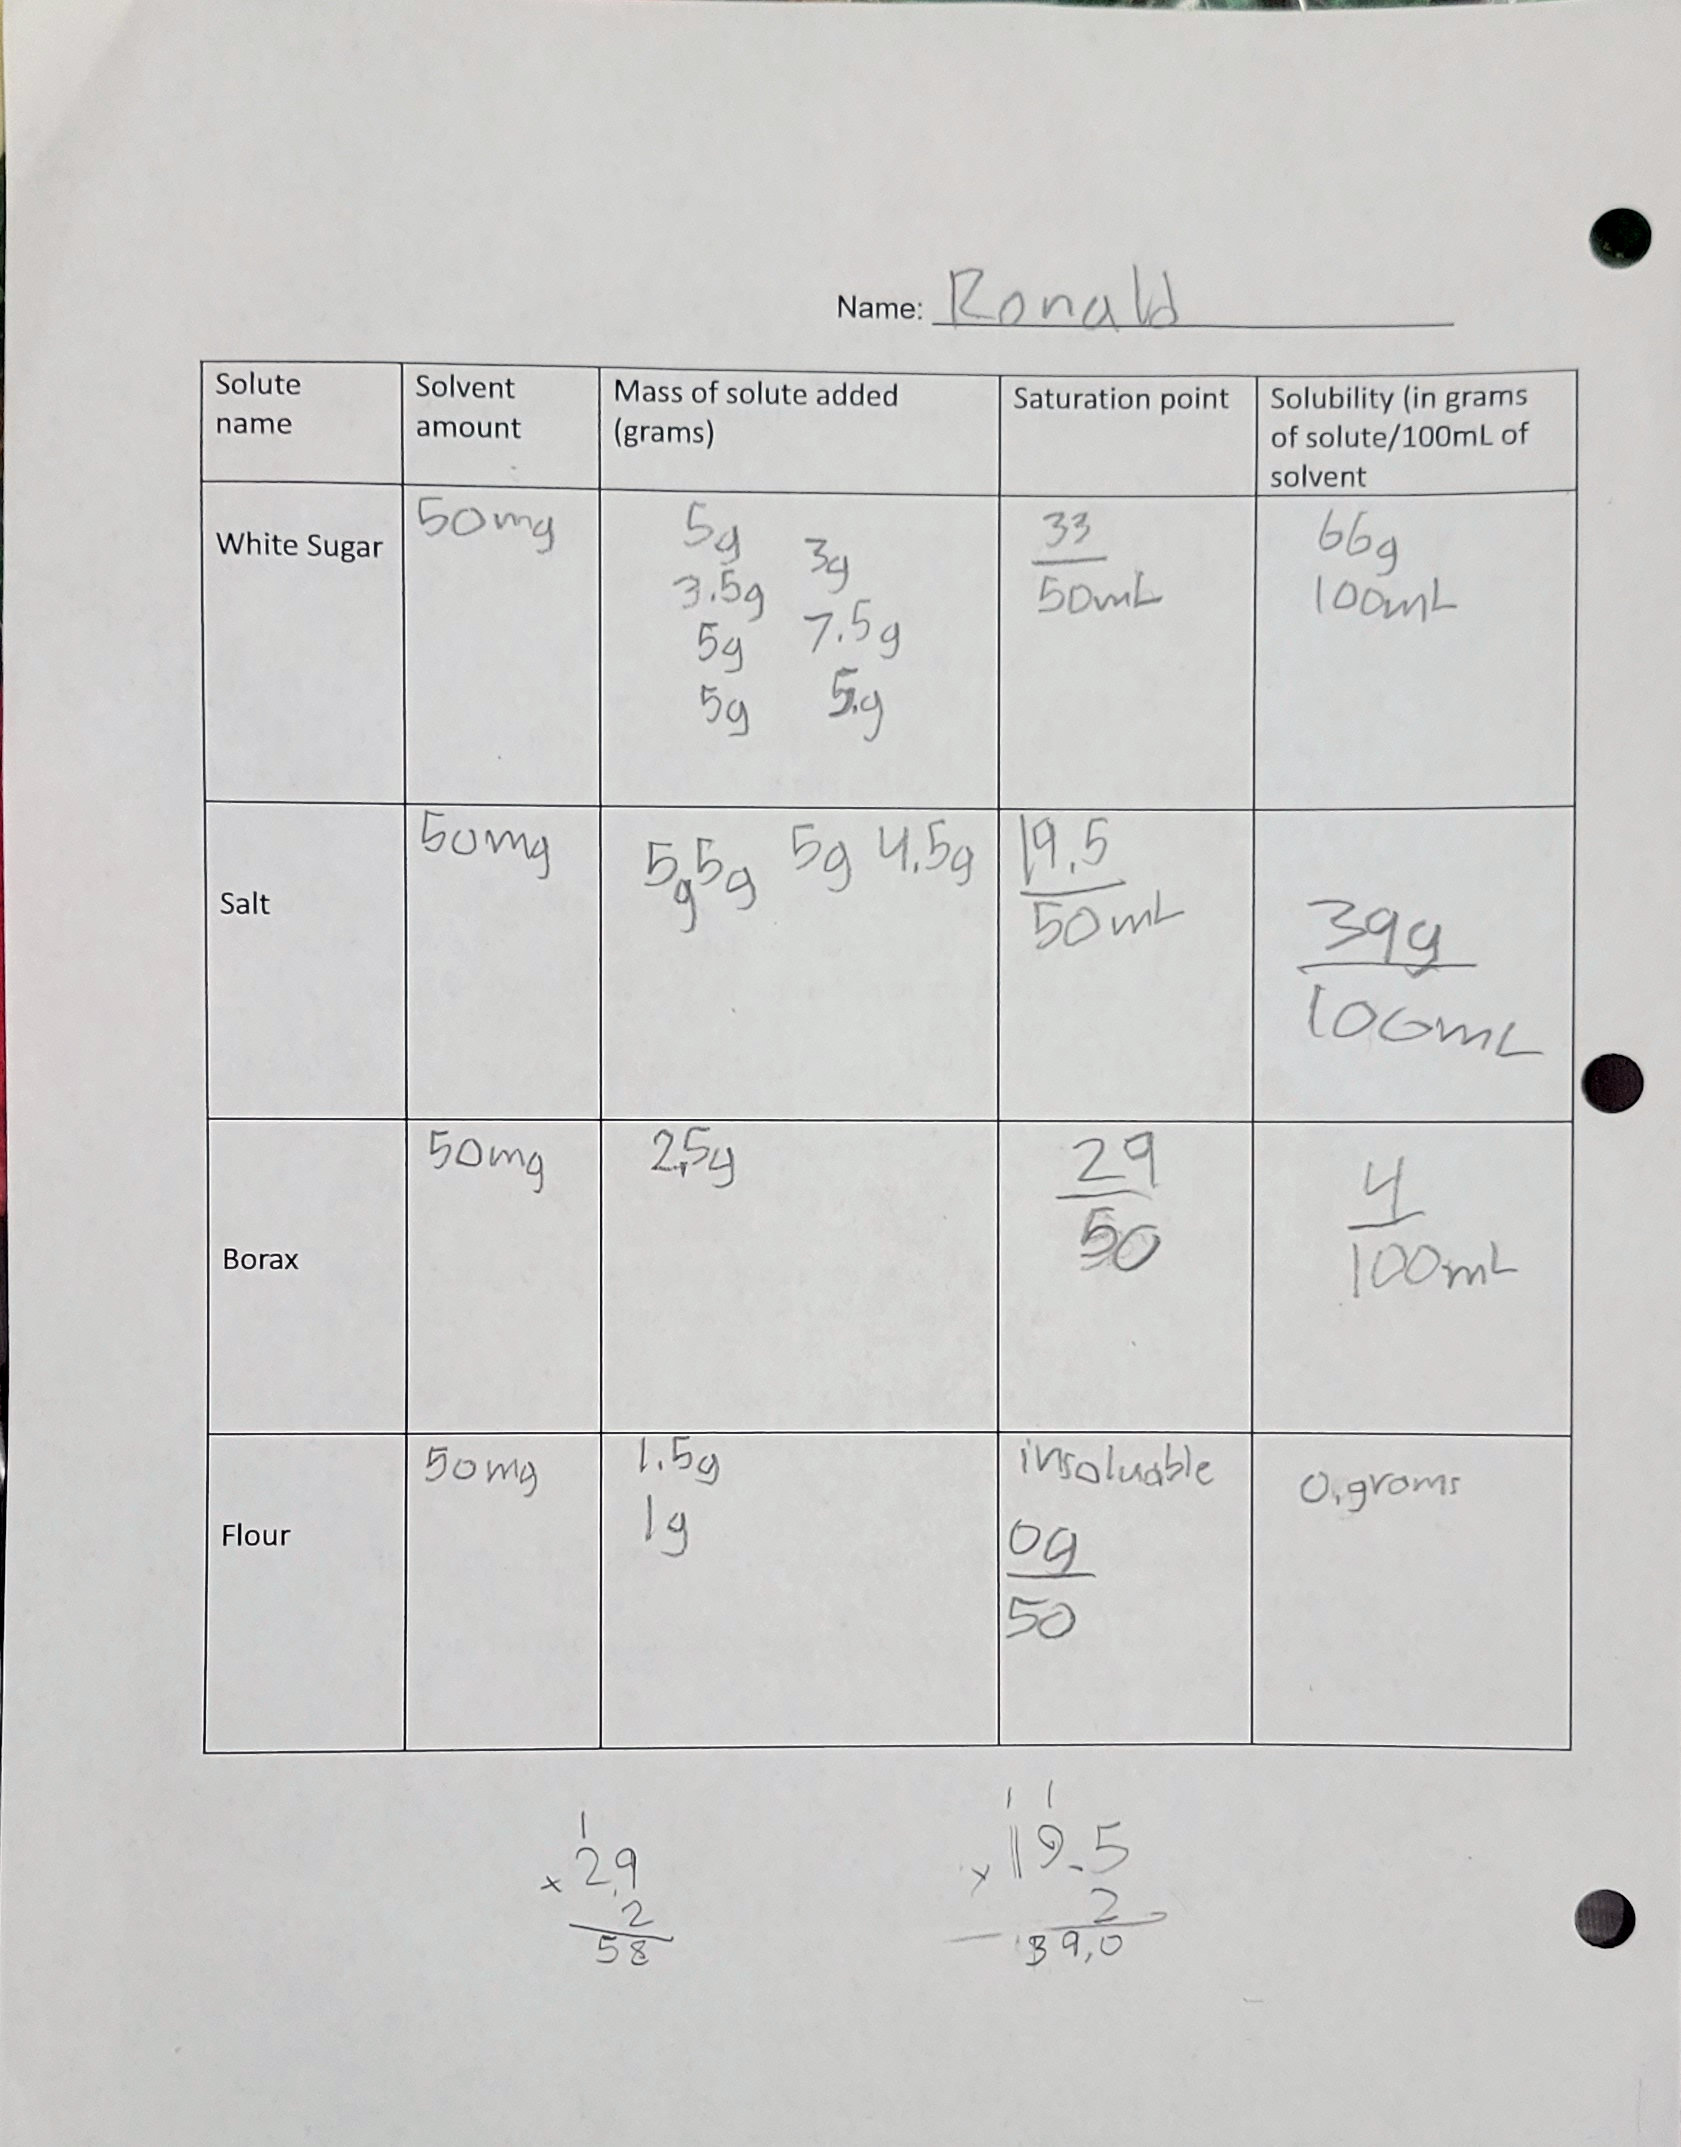 Name: Ronald
Solute name
Solvent amount
Mass of solute added (grams)
Saturation point
Solubility (in grams of solute/100mL of solvent
White Sugar
50mg
5g 3g
3.5g 7.5g
5g 5g
5g
33
50mL
66g
100mL
Salt
50mg
5g 5g 5g 4.5g
19.5
50mL
39g
100mL
Borax
50mg
2.5g
29
50
4
100mL
Flour
50mg
1.5g
1g
insoluable
0g
50
0.grams
1
x 2.9
2
58
1 1
x 19.5
2
39.0